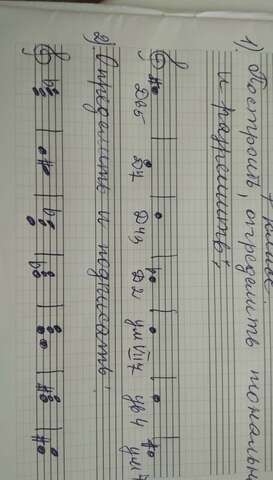 1). Построить, определить тональн
и разрешить:
Д65 Д7 Д43 Д2 ум VII7 ув4 ум
2). Определить и подписать: